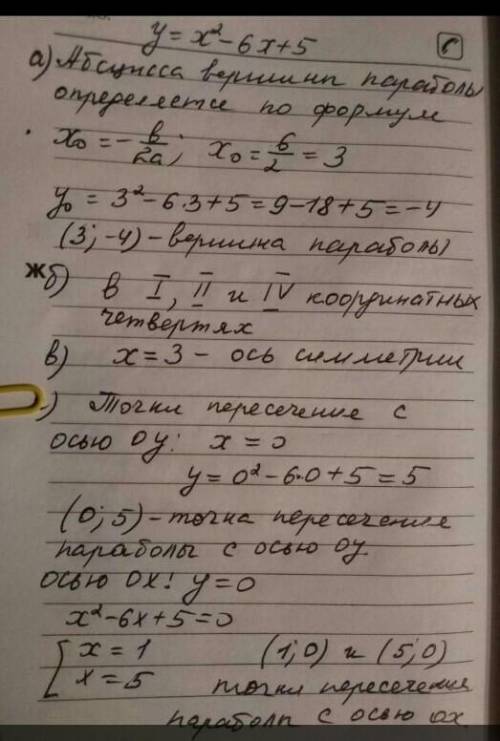 y = x² - 6x + 5
а) Абсцисса вершины параболы
определяется по формул
x₀ = - в/2a; x₀ = 6/2 = 3
y₀ = 3² - 6·3 + 5 = 9 - 18 + 5 = -4
(3; -4) - вершина параболы
жб) в I, II и IV координатных
четвертях
в) x = 3 - ось симметрии
) Точки пересечение с
осью Oy: x = 0
y = 0² - 6·0 + 5 = 5
(0; 5) - точка пересечения
параболы с осью Oy.
осью Ox: y = 0
x² - 6x + 5 = 0
[ x = 1 (1; 0) и (5; 0)
x = 5 точки пересечения
параболы с осью Ox.